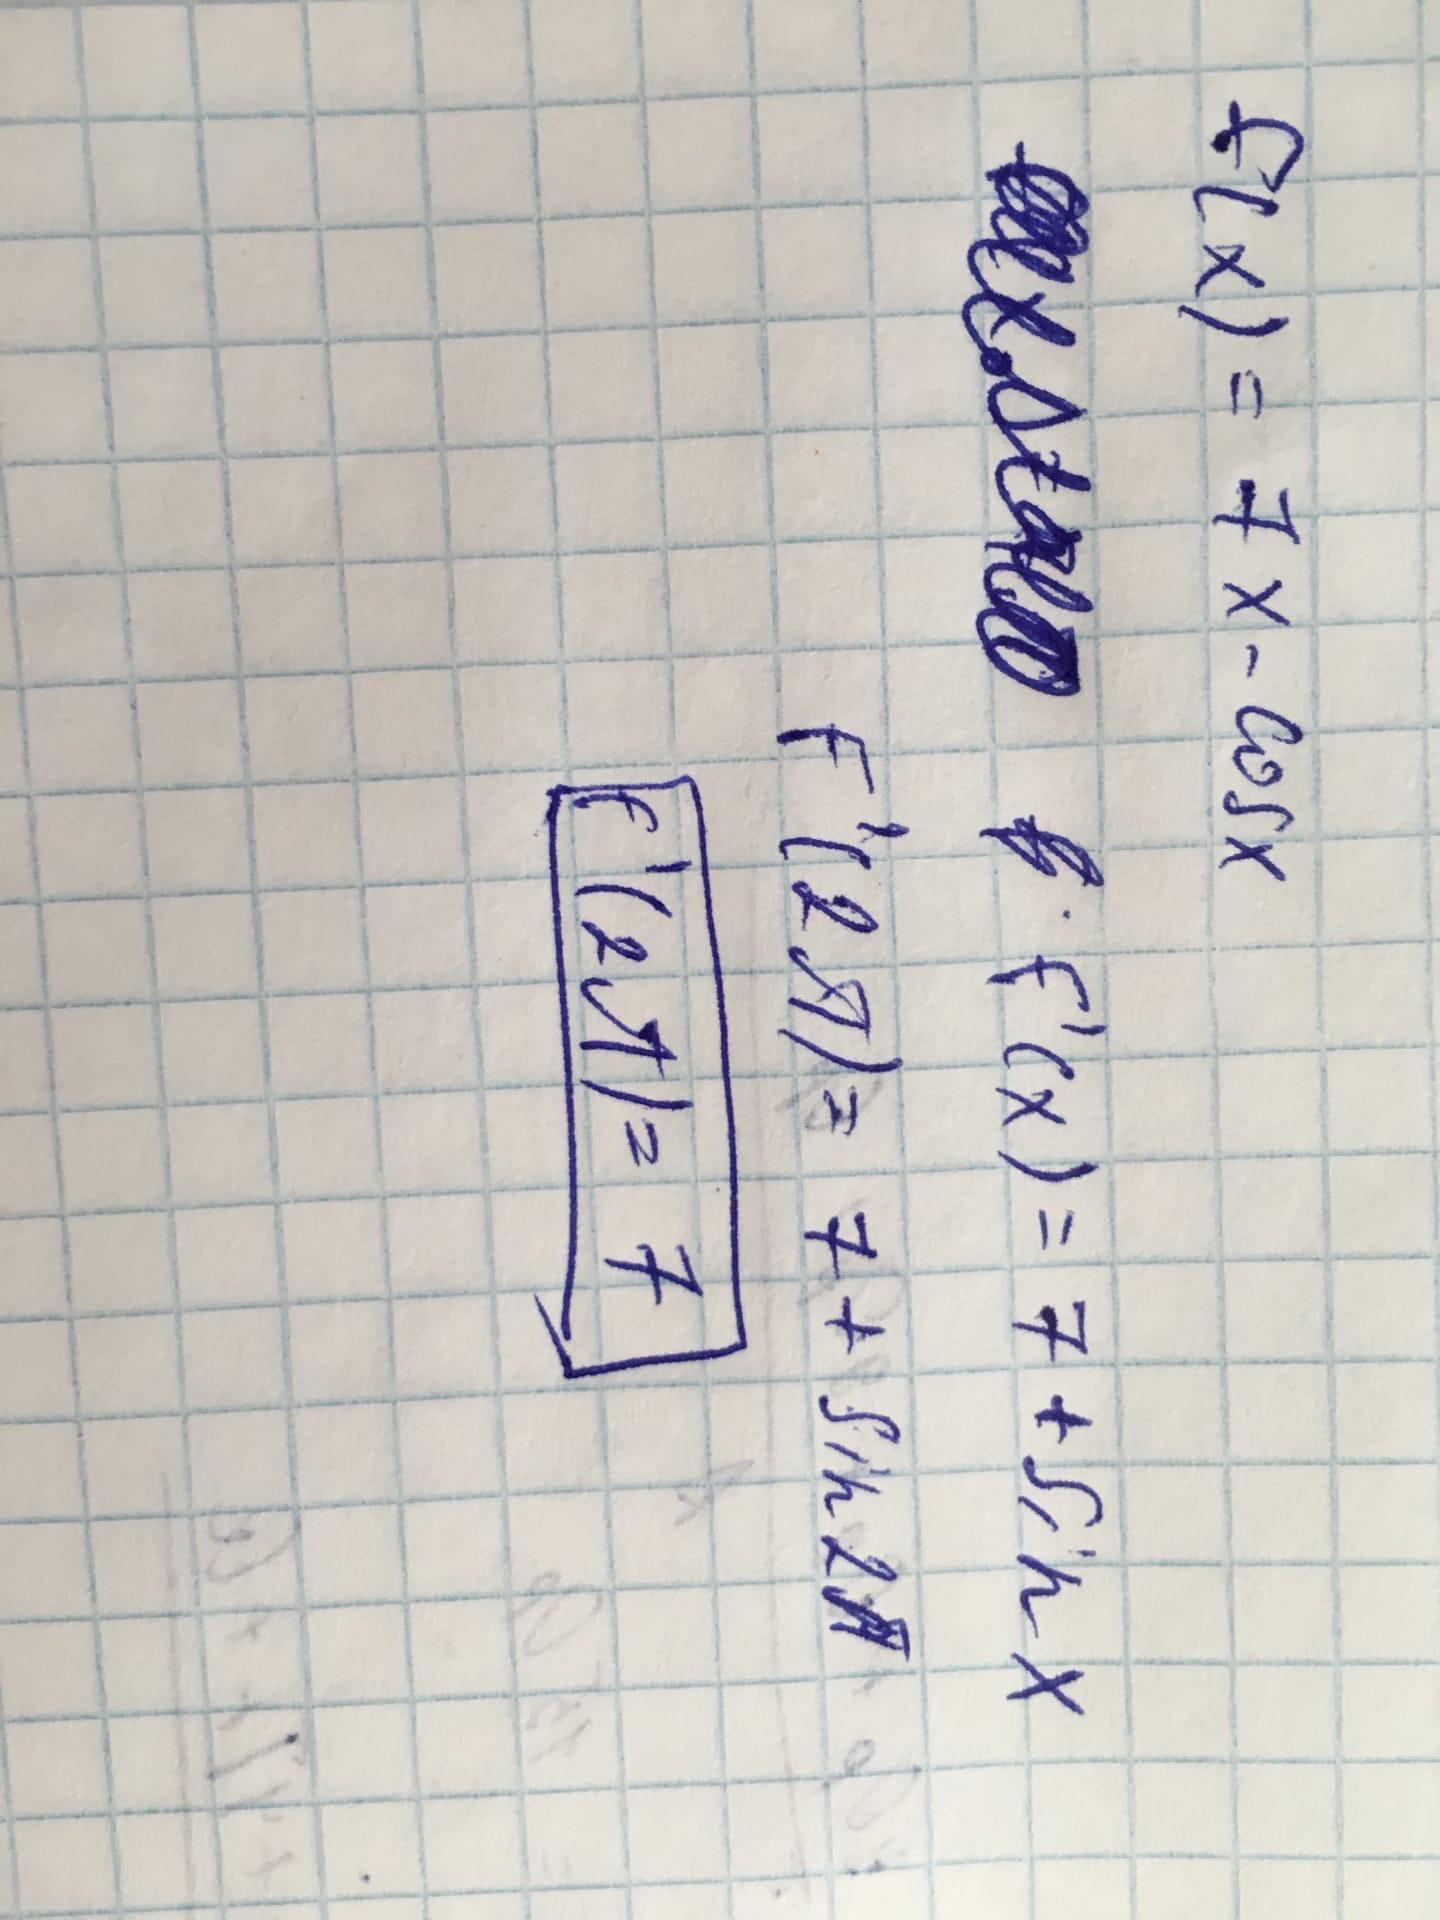 f(x) = 7x - cosx
f'(x) = 7 + sin x
F'(2π) = 7 + sin 2π
F'(2π) = 7